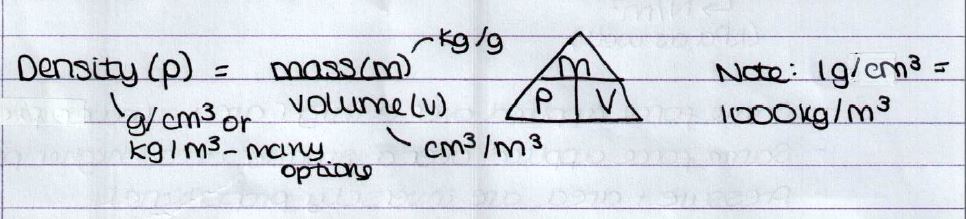 kg/g
Density (p) = mass(m)
volume(v)
m
p V
Note: 1g/cm³ =
1000kg/m³
g/cm³ or
kg/m³ - many
options
cm³/m³